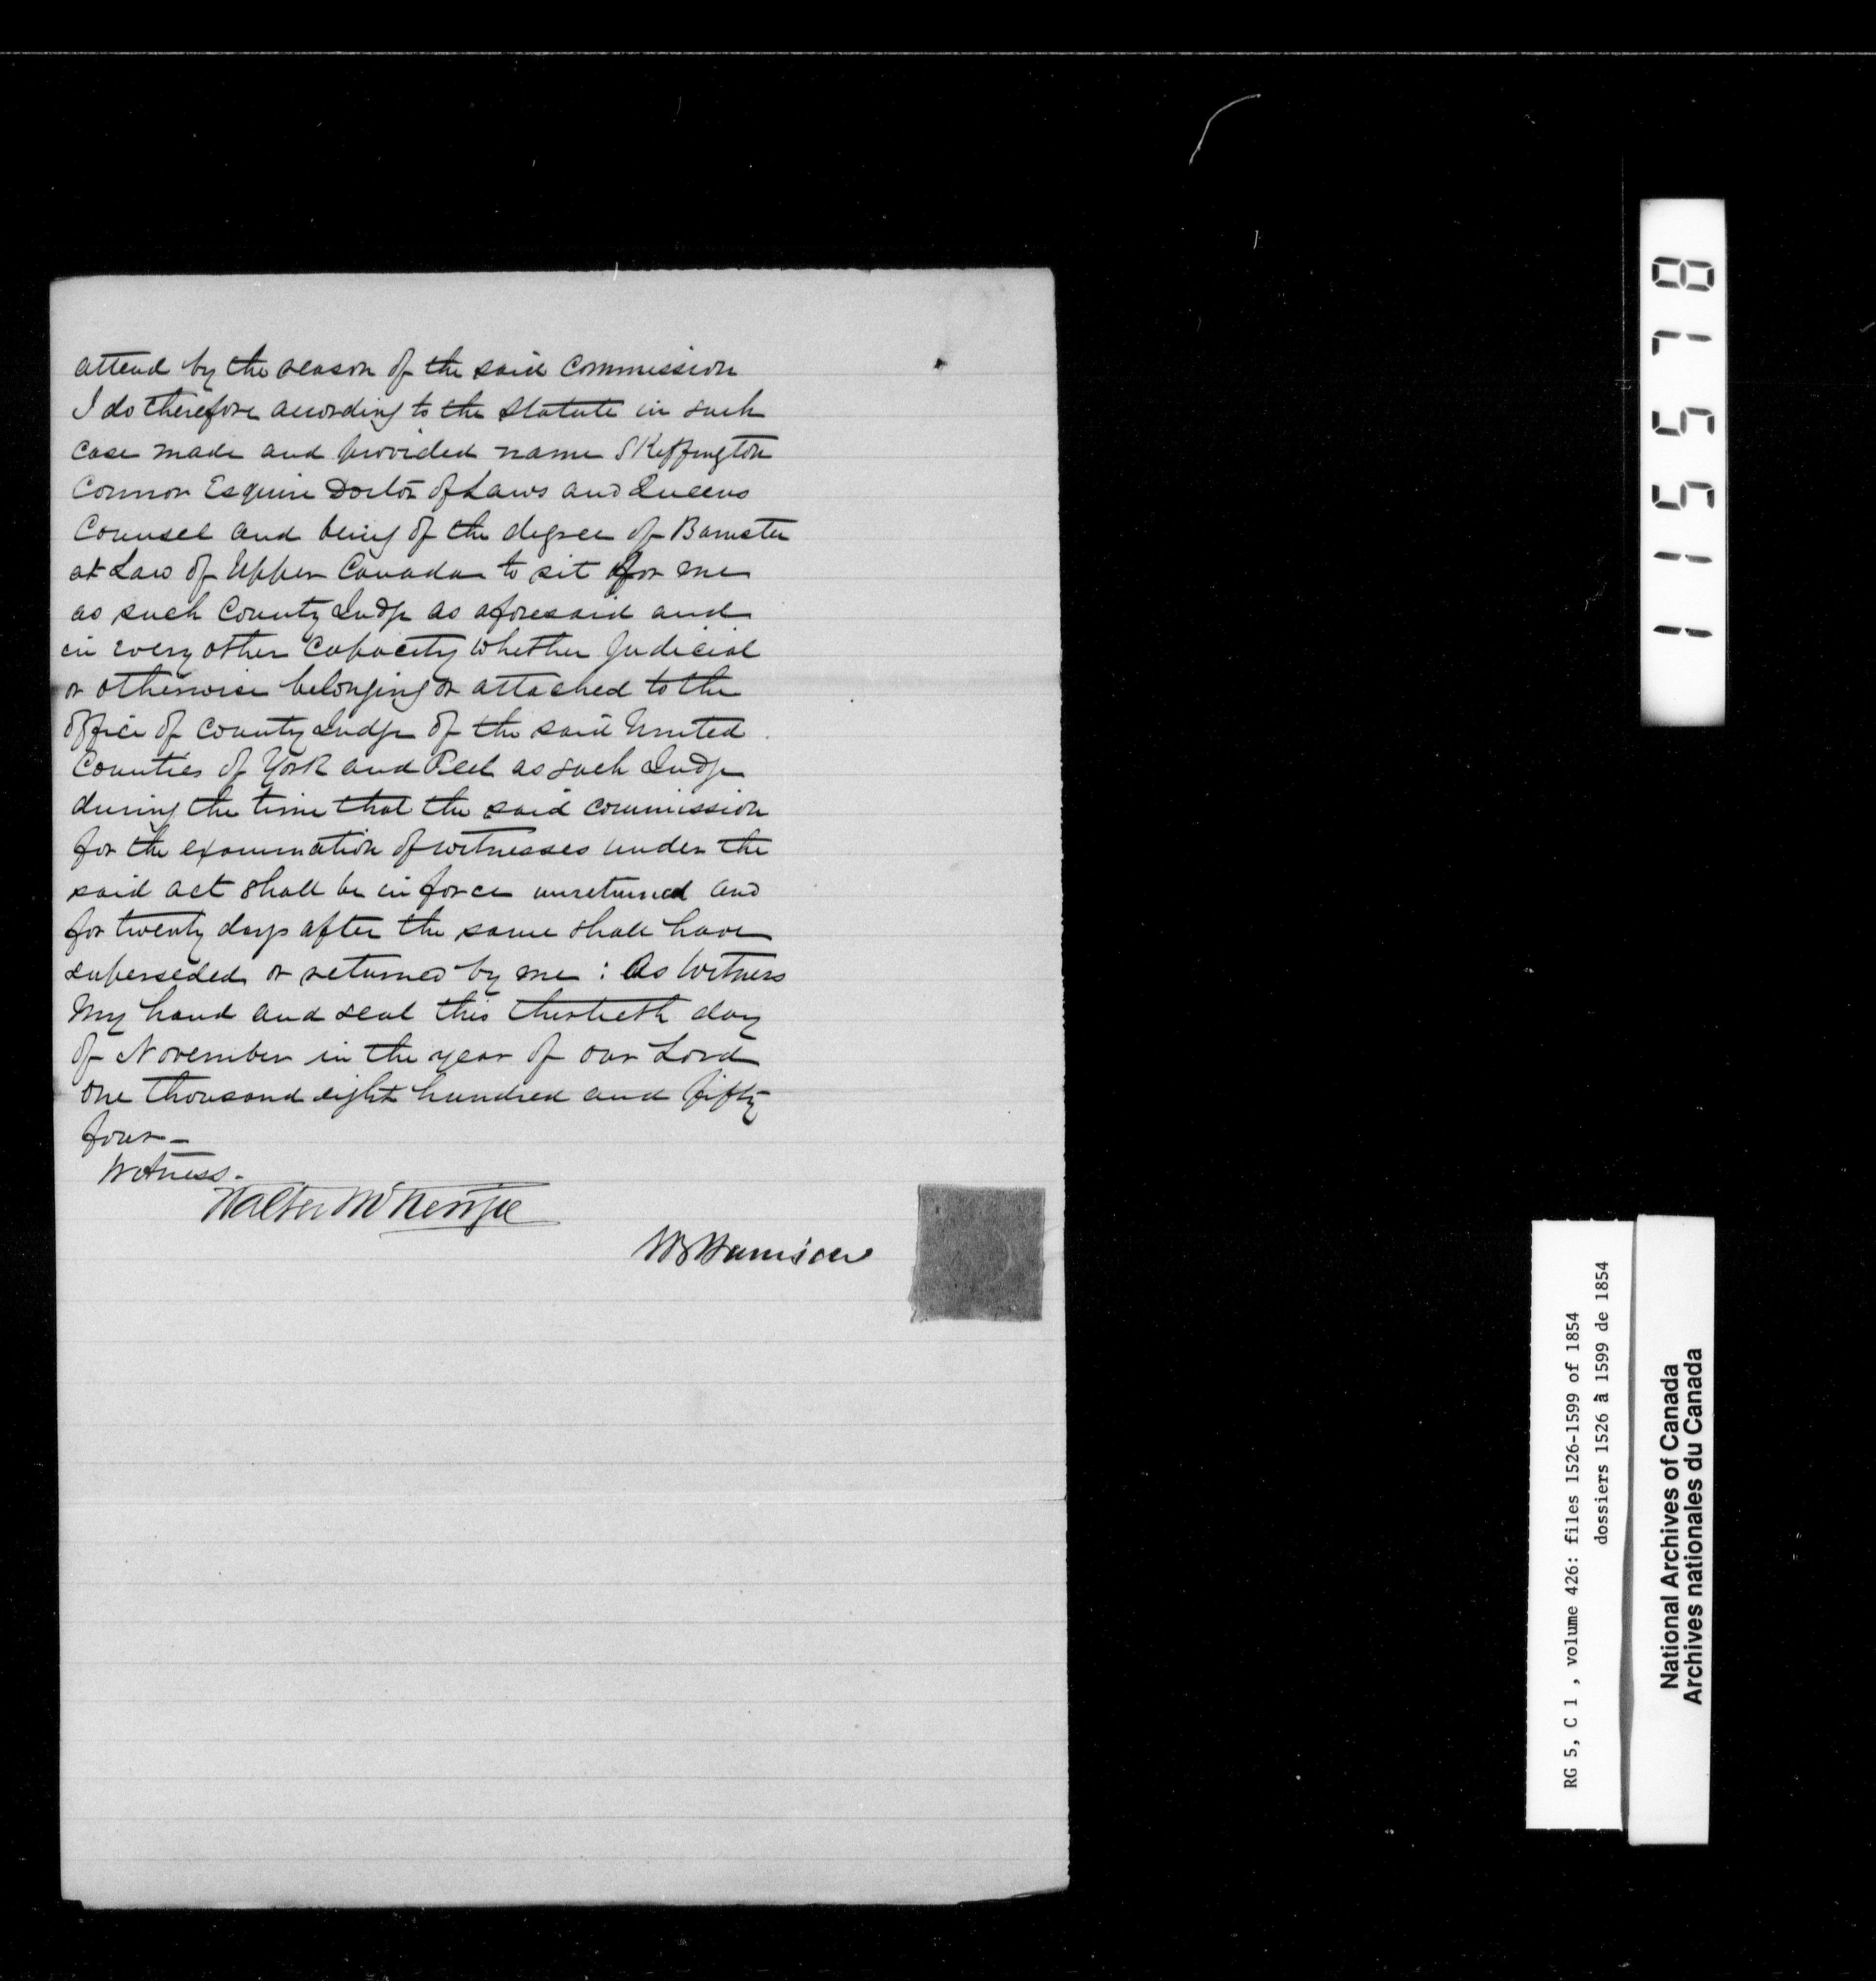 attend by the reason of the said Commission
I do therefore according to the Statute in such
case made and provided name SKeffington
Connor Esquire Doctor of Laws and Queens
Counsel and being of the degree of Barrister
at Law of Upper Canada to sit for me
as such County Judge as aforesaid and
in every other capacity whether Judicial
or otherwise belonging or attached to the
office of County Judge of the said United
Counties of York and Peel as such Judge
during the time that the said commission
for the examination of witnesses under the
said act shall be in force unreturned and
for twenty days after the same shall have
superseded or returned by me : As Witness
My hand and seal this thirtieth day
of November in the year of our Lord
one thousand eight hundred and fifty
four -
Witness -
Walter McKenzie
SB Harrison
1 1 5 5 7 8
RG 5, C 1 , volume 426: files 1526-1599 of 1854
dossiers 1526 à 1599 de 1854
National Archives of Canada
Archives nationales du Canada